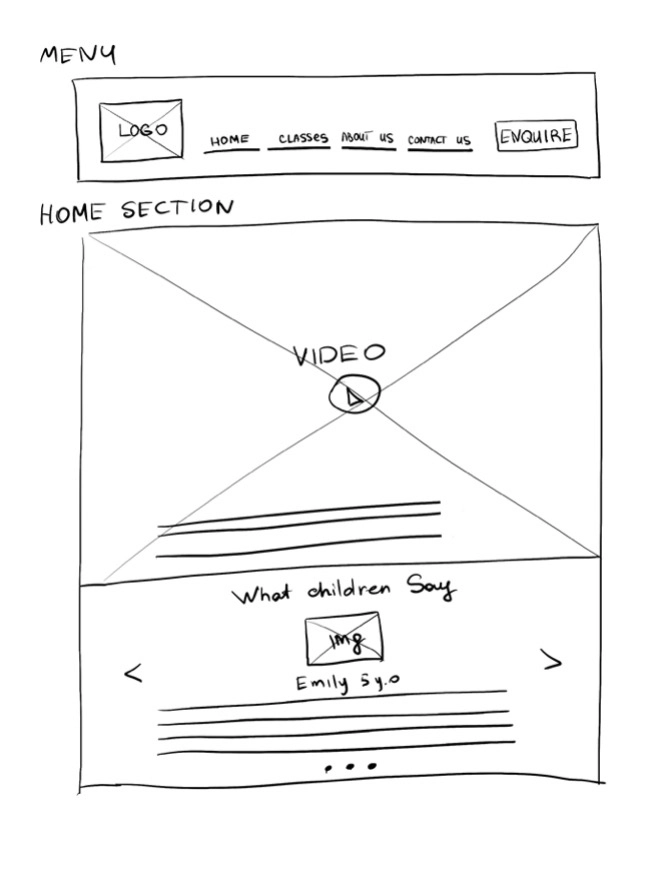 MENU
LOGO
HOME CLASSES ABOUT US CONTACT US ENQUIRE
HOME SECTION
VIDEO
What children Say
img
< >
Emily 5 y.o